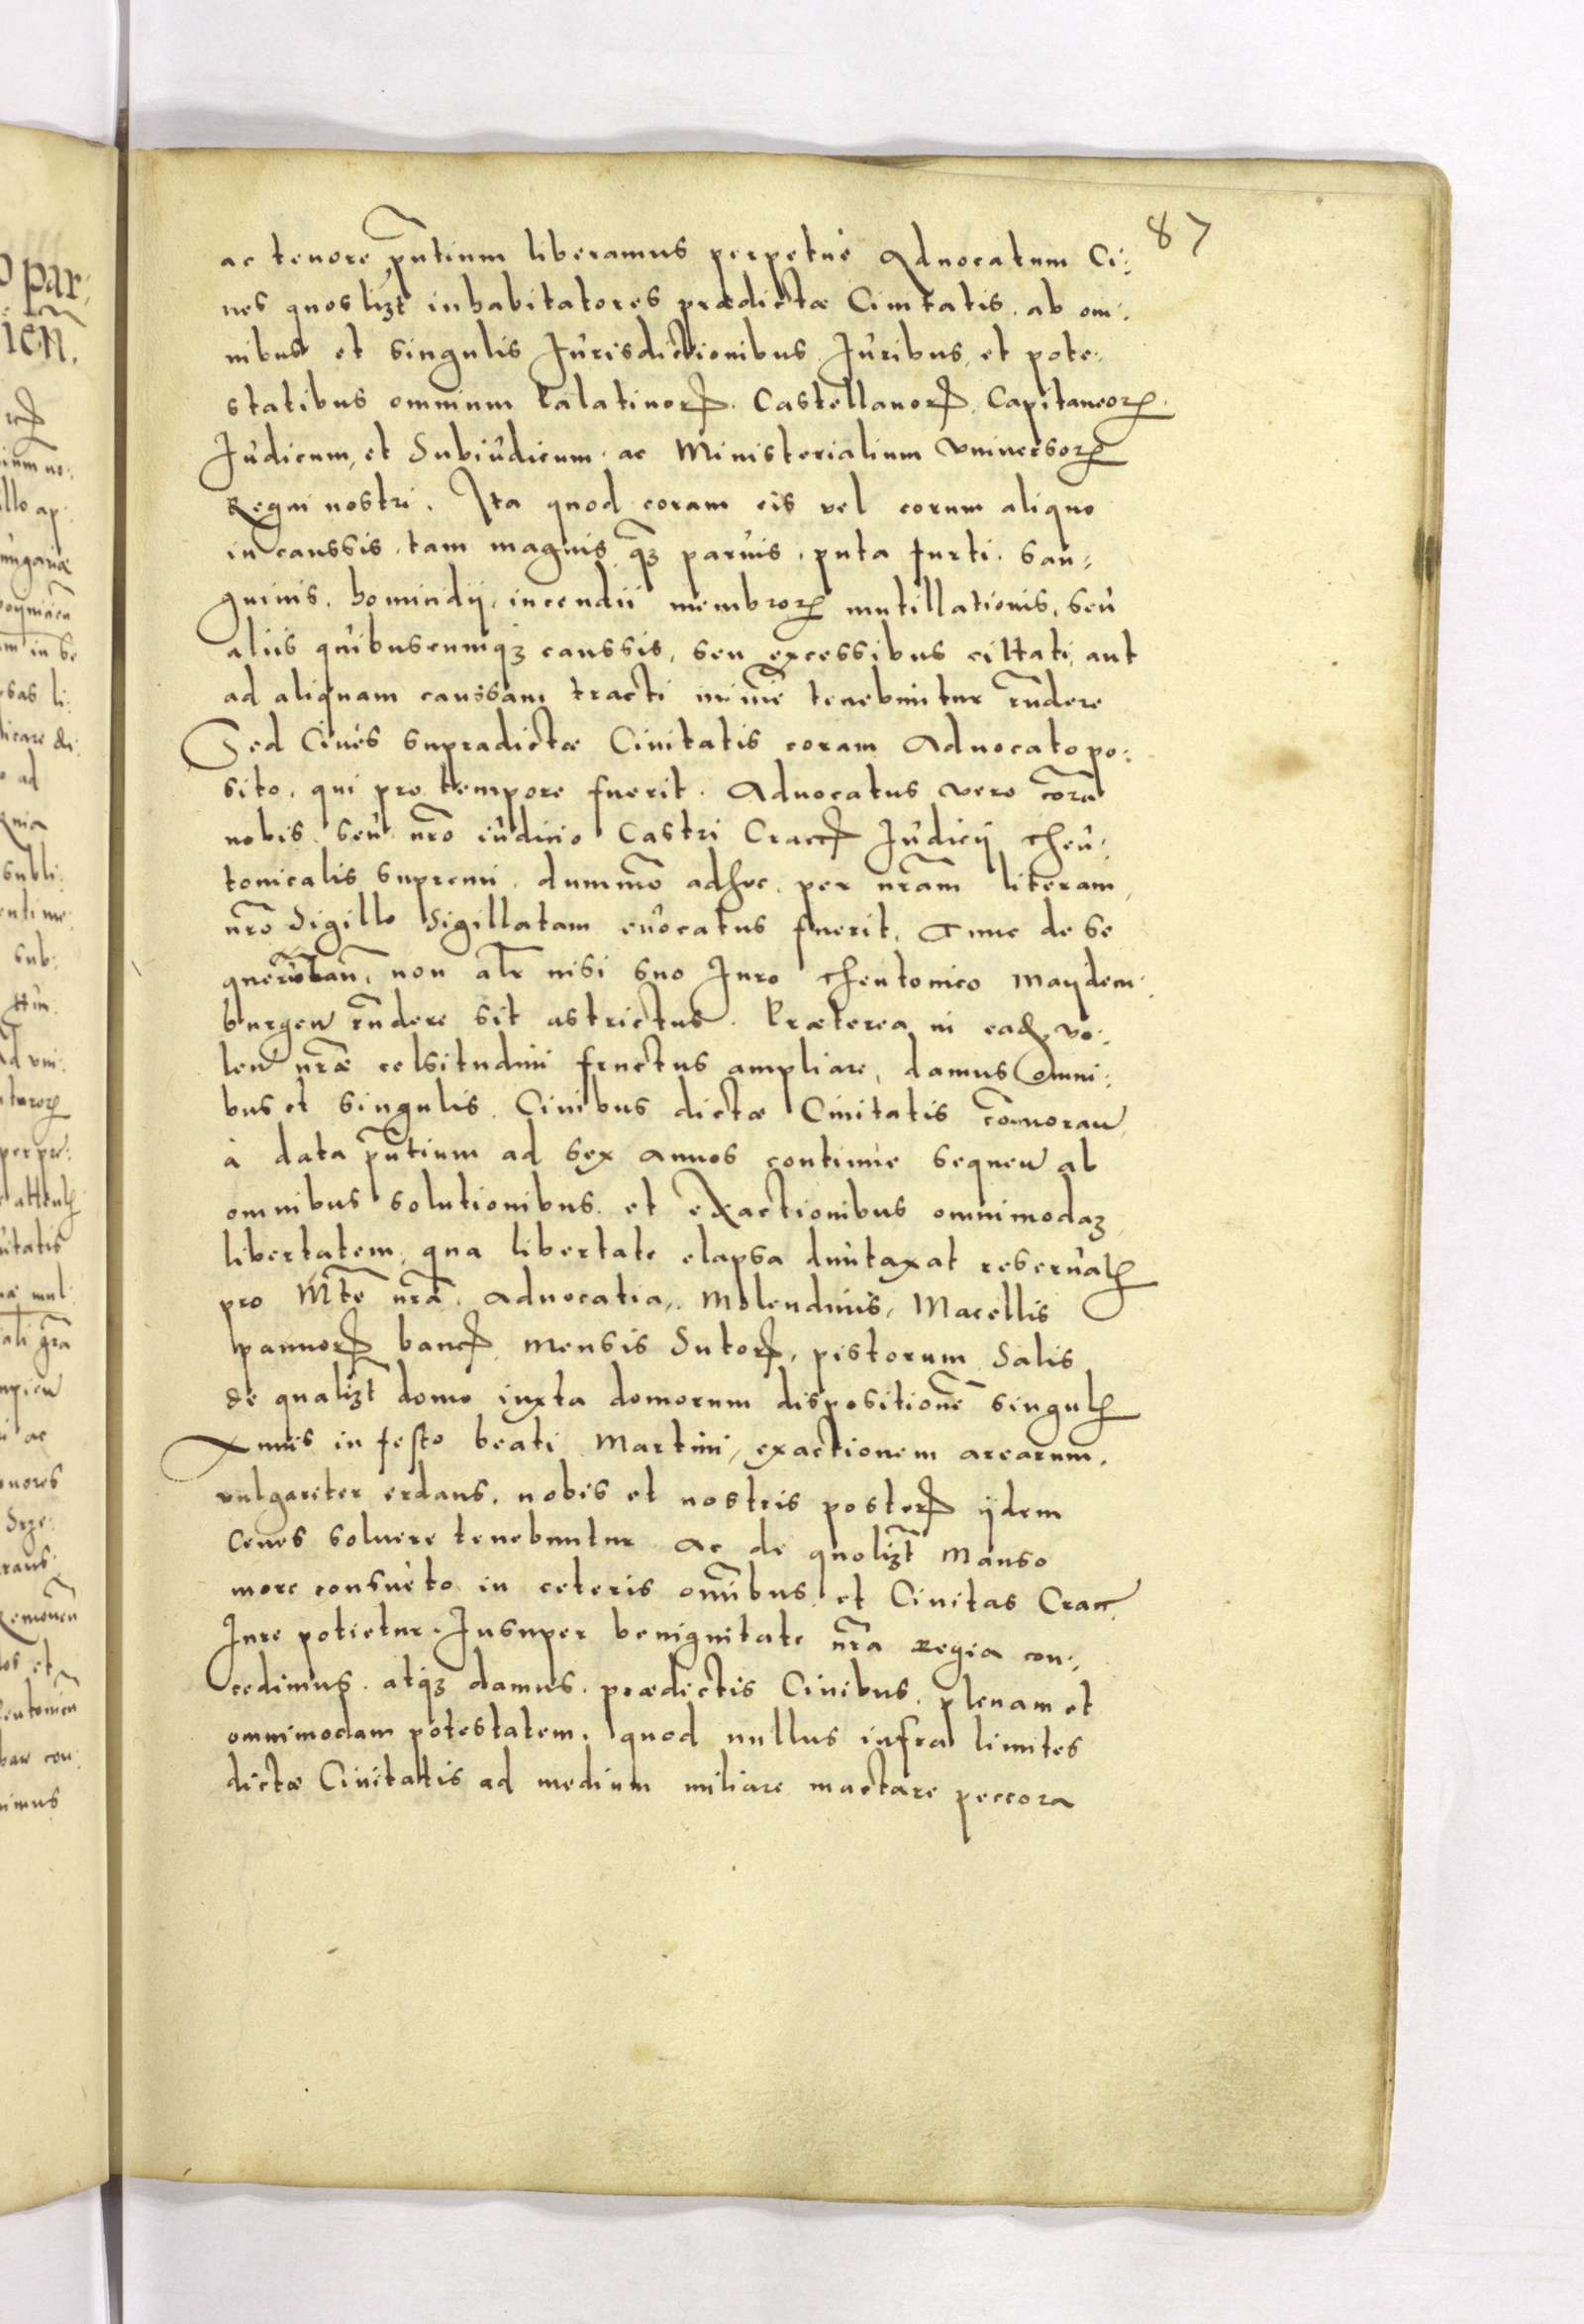 87
ac tenore pn̄tium liberamus perpetuè Aduocatum Ci:
ues quoslizt inhabitatores prædictæ Ciuitatis. ab om:
nibus et singulis Jurisdictionibus Juribus, et pote:
statibus omnium Palatinorꝝ. Castellanorꝝ. Capitaneorꝝ.
Judicum, et Subiudicum. ac Ministerialium vniuersorꝝ
Regni nostri. Ita quod coram eis vel eorum aliquo
in caussis. tam magnis qꝫ paruis. puta furti. san:
guinis. homicidij, incendii membrorꝝ mutillationis, seu
aliis quibuscumqꝫ caussis, seu excessibus cittati, aut
ad aliquam caussam tracti minime tenebuntur rn̄dere
Sed Ciues supradictæ Ciuitatis coram Aduocato po:
sito. qui pro tempore fuerit. Aduocatus vero corā
nobis seu nr̄o iudicio Castri Cracꝝ Judicij theu:
tonicalis supremi. dummō adhoc. per nr̄am literam,
nr̄o Sigillo Sigillatam euocatus fuerit, Tunc de se
querulan̄, non alr̄ nisi suo Juro theutonico maydem:
burgen rn̄dere sit astrictus. Præterea in eaꝗ vo:
len nr̄æ celsitudini fructus ampliare, damus omni:
bus et singulis Ciuibus dictæ Ciuitatis com̄oran
à data pn̄tium ad sex annos continue sequen ab
omnibus solutionibus. et exactionibus omnimodaꝫ
libertatem, qua libertate elapsa duntaxat reseruatꝭ
pro M̄te nr̄a. Aduocatia,. Molendinis, Macellis
pannorꝝ bancꝝ mensis Sutorꝝ, pistorum Salis
de qualizt domo iuxta domorum dispositionē singulꝭ
Annis in festo beati Martini, exactionem arearum.
vulgariter erdans. nobis et nostris posterꝝ ijdem
Ceues soluere tenebuntur Ac de quolizt Manso
more consueto in ceteris om̄ibus et Ciuitas Crac
Jure potietur. Insuper benignitate nr̄a Regia con:
cedimus. atqꝫ damus. prædictis Ciuibus. plenam et
omnimodam potestatem. quod nullus infra limites
dictæ Ciuitatis ad medium miliare mactare peccora